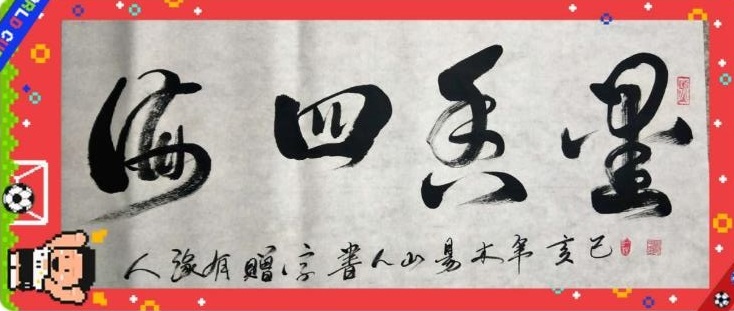 墨香四海
己亥年木易山人書字贈有緣人
WORLD CU